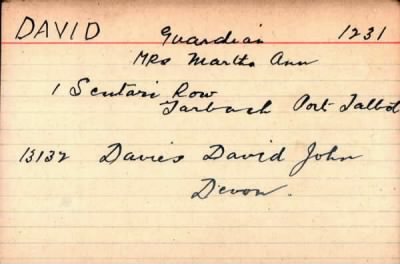 DAVID Guardian 1231
Mrs Martha Ann
1 Scutari Row
Taibach Port Talbot
13132 Davies David John
Devon.